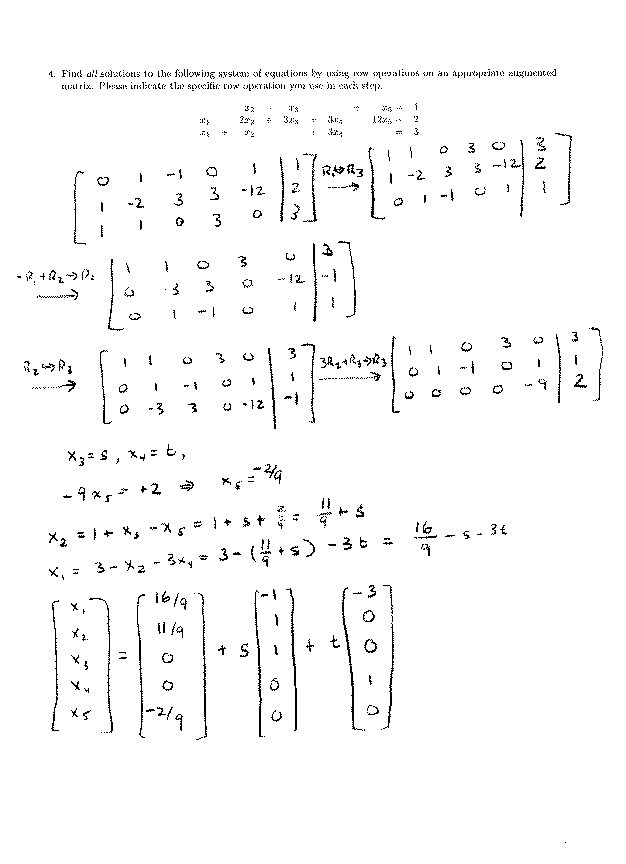 4. Find all solutions to the following system of equations by using row operations on an appropriate augmented
matrix. Please indicate the specific row operation you use in each step.
x₂ - x₃ + x₅ = 1
x₁ 2x₂ + 3x₃ + 3x₄ 12x₅ = 2
x₁ + x₂ + 3x₄ = 3
[0 1 -1 0 1 | 1] R₁↔R₃ [1 1 0 3 0 | 3]
[1 -2 3 3 -12 | 2] → [1 -2 3 3 -12 | 2]
[1 1 0 3 0 | 3] [0 1 -1 0 1 | 1]
[1 1 0 3 0 | 3]
-R₁+R₂→R₂ [0 -3 3 0 -12 | -1]
[0 1 -1 0 1 | 1]
R₂↔R₃ [1 1 0 3 0 | 3] 3R₂+R₃→R₃ [1 1 0 3 0 | 3]
→ [0 1 -1 0 1 | 1] → [0 1 -1 0 1 | 1]
[0 -3 3 0 -12 | -1] [0 0 0 0 -9 | 2]
x₃ = s, x₄ = t,
-9x₅ = +2 ⇒ x₅ = -2/9
x₂ = 1 + x₃ - x₅ = 1 + s + 2/9 = 11/9 + s
x₁ = 3 - x₂ - 3x₄ = 3 - (11/9 + s) - 3t = 16/9 - s - 3t
[x₁] [16/9] [-1] [-3]
[x₂] [11/9] [1] [0]
[x₃] = [0] + s [1] + t [0]
[x₄] [0] [0] [1]
[x₅] [-2/9] [0] [0]